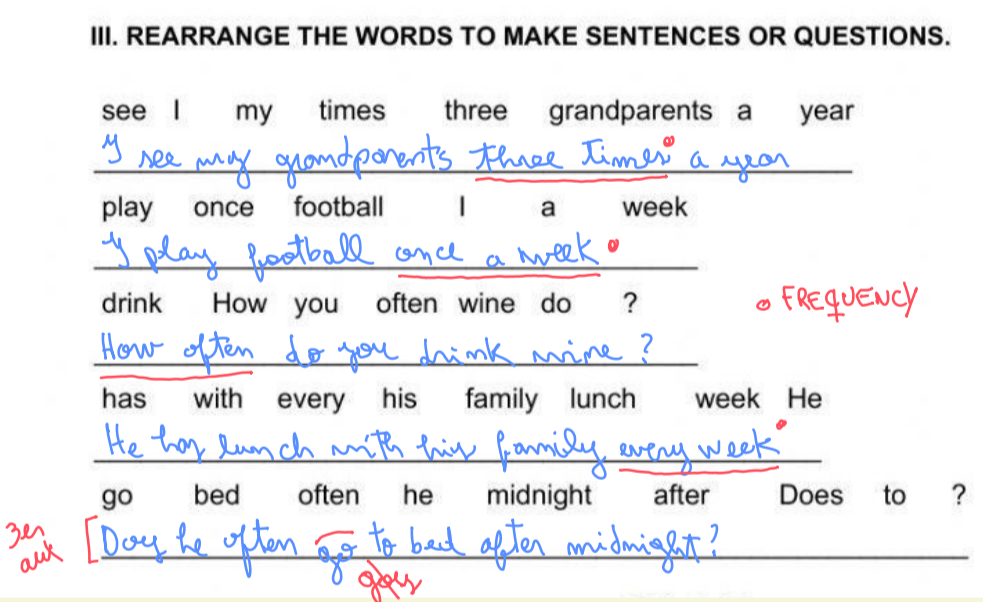 III. REARRANGE THE WORDS TO MAKE SENTENCES OR QUESTIONS.
see I my times three grandparents a year
I see my grandparents three times a year
play once football I a week
I play football once a week
drink How you often wine do ?
FREQUENCY
How often do you drink wine?
has with every his family lunch week He
He has lunch with his family every week
go bed often he midnight after Does to ?
3er aux [Does he often go to bed after midnight?
goes